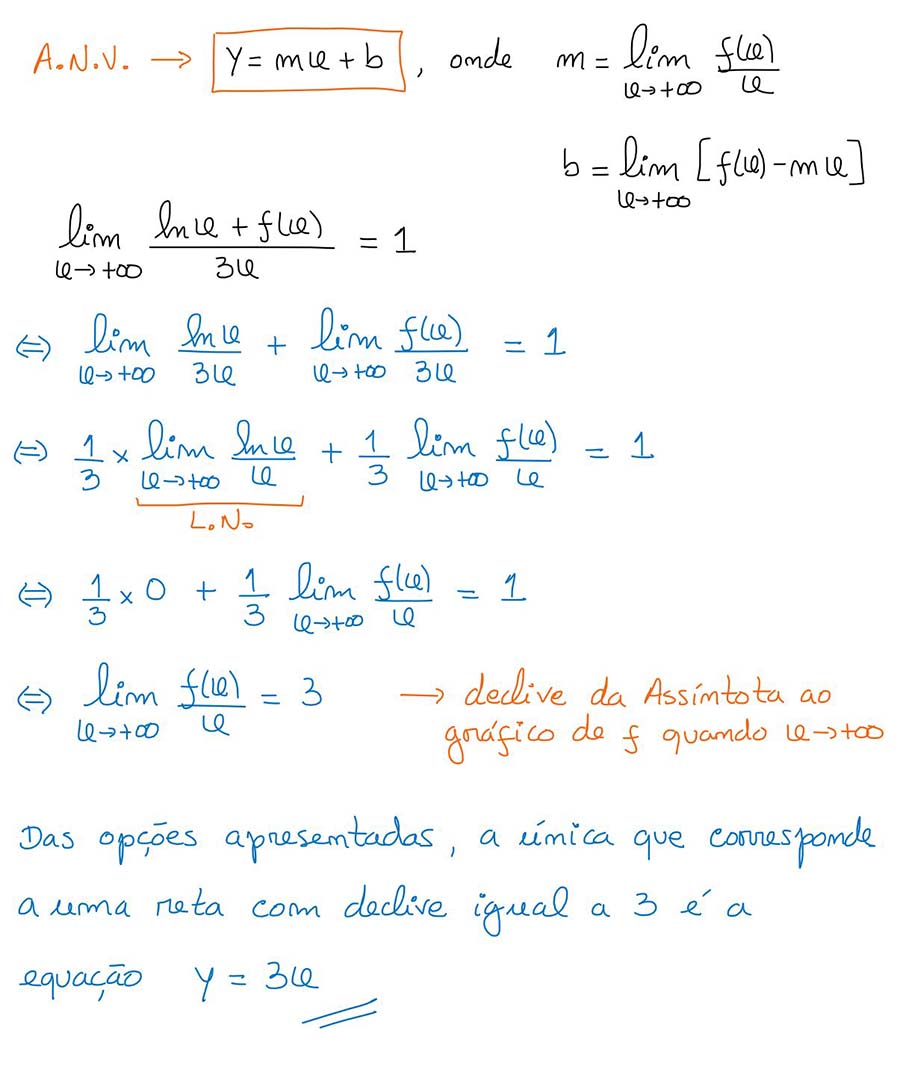 A.N.V. → y = mx + b , onde m = lim x→+∞ f(x)/x
b = lim x→+∞ [f(x) - mx]
lim x→+∞ (ln x + f(x))/3x = 1
⇔ lim x→+∞ ln x/3x + lim x→+∞ f(x)/3x = 1
⇔ 1/3 × lim x→+∞ ln x/x + 1/3 lim x→+∞ f(x)/x = 1
L.N.
⇔ 1/3 × 0 + 1/3 lim x→+∞ f(x)/x = 1
⇔ lim x→+∞ f(x)/x = 3 → declive da Assíntota ao
gráfico de f quando x→+∞
Das opções apresentadas, a única que corresponde
a uma reta com declive igual a 3 é a
equação y = 3x